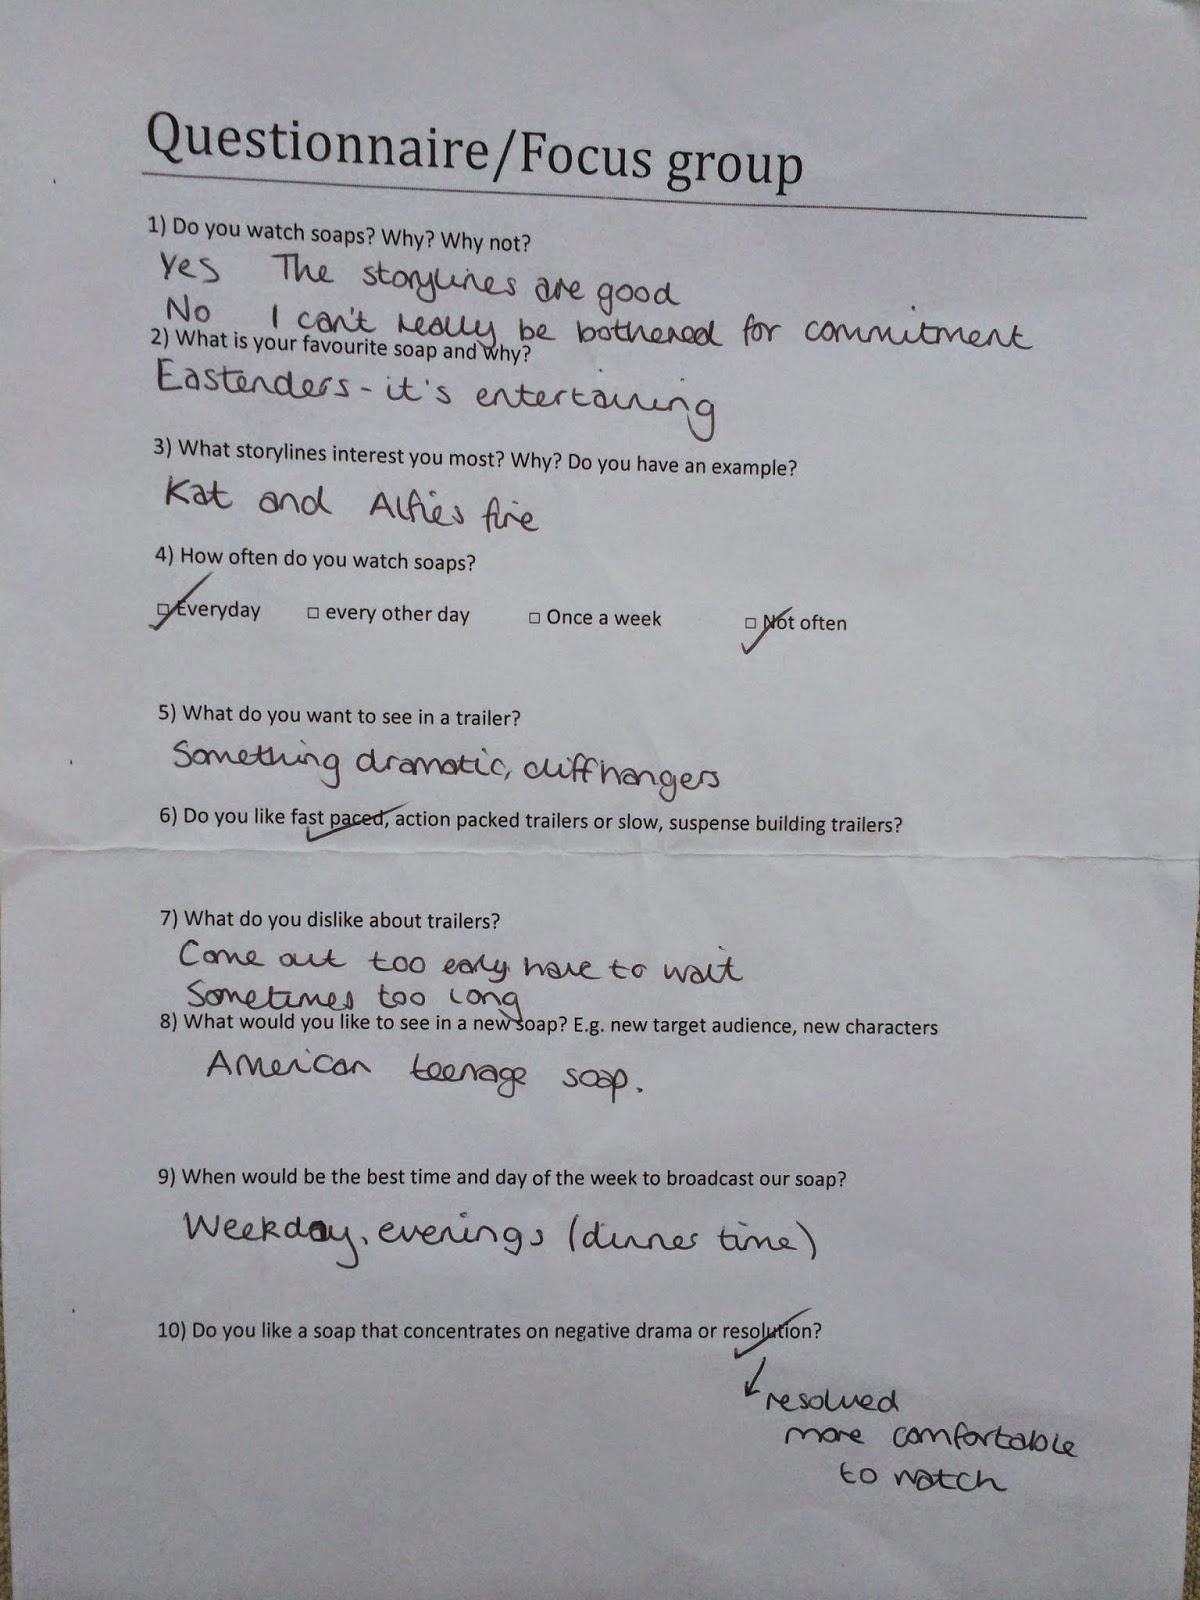 Questionnaire/Focus group
1) Do you watch soaps? Why? Why not?
Yes The storylines are good
No I can't really be bothered for commitment
2) What is your favourite soap and why?
Eastenders - it's entertaining
3) What storylines interest you most? Why? Do you have an example?
Kat and Alfies fire
4) How often do you watch soaps?
□ Everyday □ every other day □ Once a week □ Not often
5) What do you want to see in a trailer?
Something dramatic, cliffhangers
6) Do you like fast paced, action packed trailers or slow, suspense building trailers?
7) What do you dislike about trailers?
Come out too early have to wait
Sometimes too long
8) What would you like to see in a new soap? E.g. new target audience, new characters
American teenage soap.
9) When would be the best time and day of the week to broadcast our soap?
Weekday, evenings (dinner time)
10) Do you like a soap that concentrates on negative drama or resolution?
resolved
more comfortable
to watch